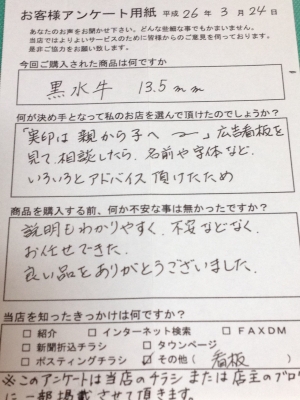 お客様アンケート用紙 平成 26 年 3 月 24 日
あなたのお声をお聞かせ下さい。どんな些細な事でもかまいません。
当店ではよりよいサービスのために皆様からのご意見を伺っております。
是非ご協力をお願い致します。
今回ご購入された商品は何ですか
黒水牛 13.5mm
何が決め手となって私のお店を選んで頂けたのでしょうか?
「実印は親から子へ 〜」広告看板を
見て、相談したら、名前や字体など、
いろいろとアドバイス頂けたため
商品を購入する前、何か不安な事は無かったですか?
説明もわかりやすく、不安などなく、
お任せできた。
良い品をありがとうございました。
当店を知ったきっかけは何ですか?
□ 紹介 □ インターネット検索 □ FAXDM
□ 新聞折込チラシ □ タウンページ
□ ポスティングチラシ ☑ その他( 看板 )
※このアンケートは当店のチラシまたは店主のブログ
に一部掲載させて頂きます。